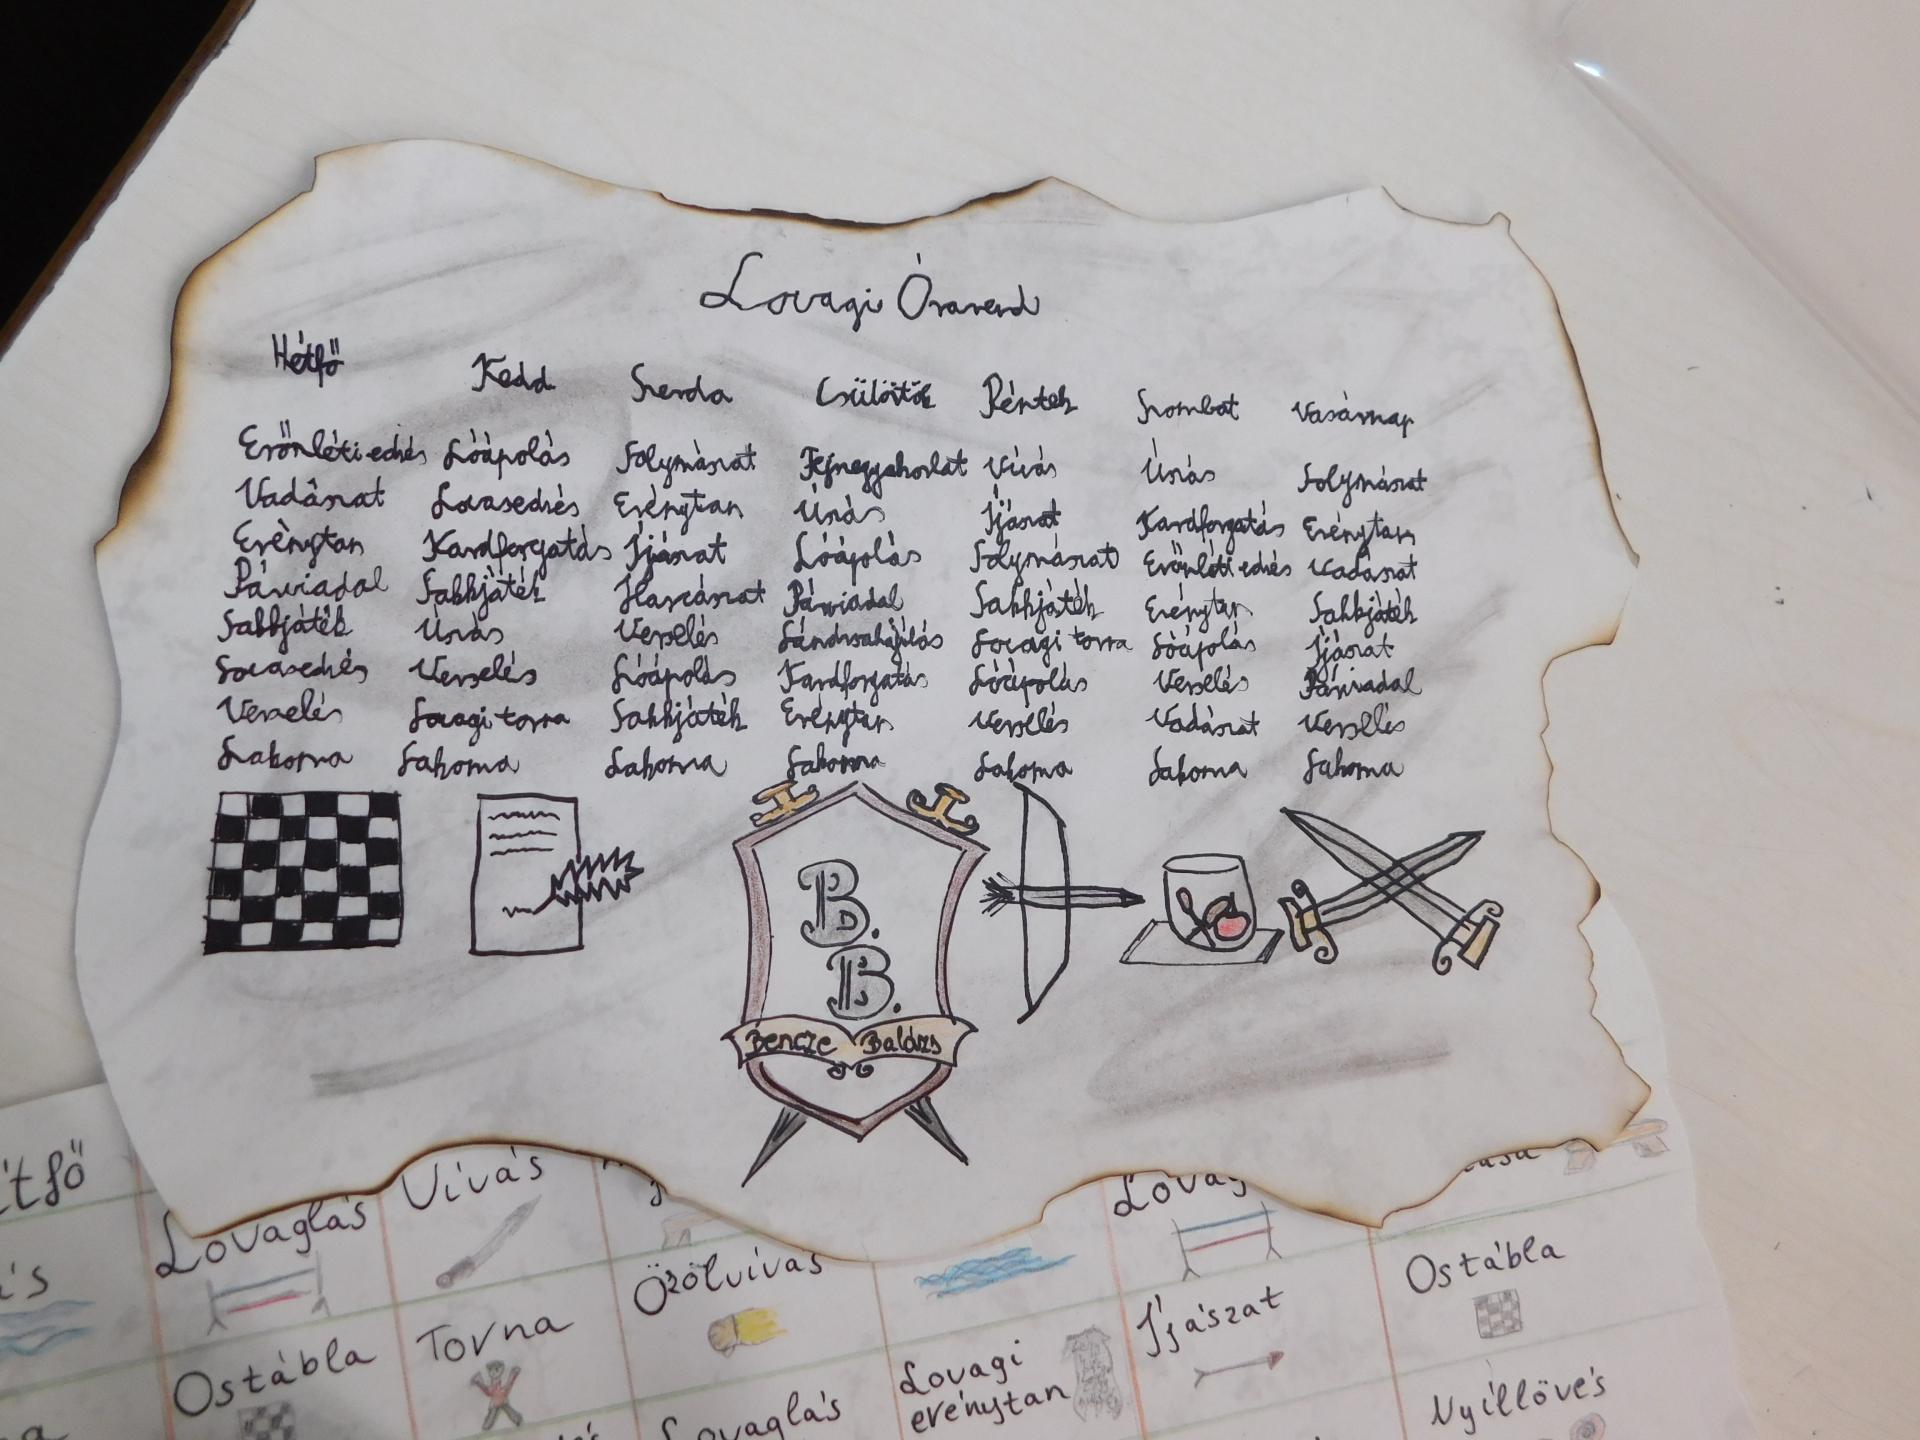 Lovagi Órarend
Hétfő Kedd Szerda Csülörtök Péntek Szombat Vasárnap
Erőnléti edzés Lóápolás Solymászat Fejnegyakorlat Vívás Úszás Solymászat
Vadászat Lovasedzés Erénytan Úszás Íjászat Kardforgatás Erénytan
Erénytan Kardforgatás Íjászat Lóápolás Solymászat Erőnléti edzés Vadászat
Párviadal Sakkjáték Harcászat Párviadal Sakkjáték Erénytan Sakkjáték
Sakkjáték Úszás Verselés Lándzsahajítás Lovagi torna Lóápolás Íjászat
Lovasedzés Verselés Lóápolás Kardforgatás Lóápolás Verselés Párviadal
Verselés Lovagi torna Sakkjáték Erénytan Verselés Vadászat Verselés
Lakoma Lakoma Lakoma Lakoma Lakoma Lakoma Lakoma
B.
B.
Bencze Balázs
Vívás
Lovaglás Özölvívás Ostábla
Ostábla Torna Lovagi erénytan Íjászat
Lovaglás Nyíllövés